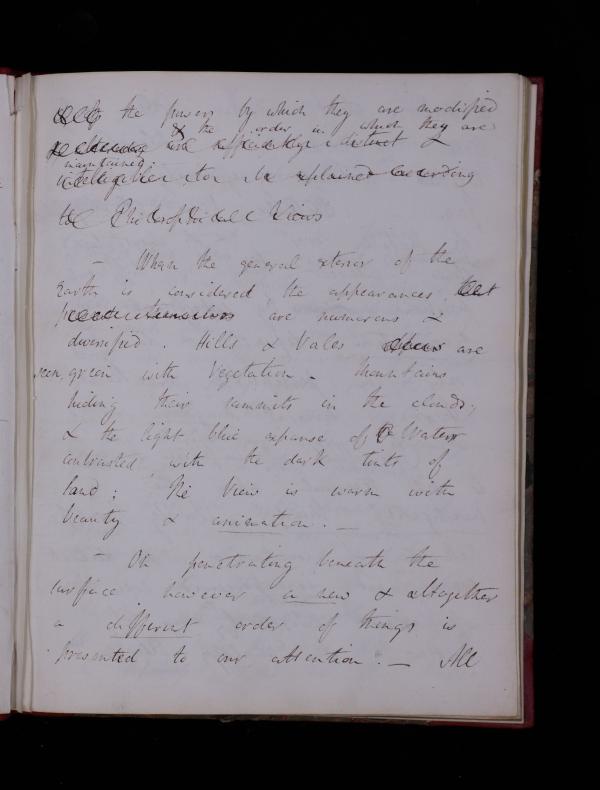 the powers by which they are modified
& the order in which they are
maintained.
— When the general exterior of the
Earth is considered, the appearances
are numerous &
diversified. Hills & Vales are
seen, green with Vegetation – Mountains
hiding their summits in the clouds;
& the light blue expanse of Waters
contrasted with the dark tints of
land; The View is warm with
beauty & animation. —
— On penetrating beneath the
surface however a new & altogether
a different order of things is
presented to our attention. — All